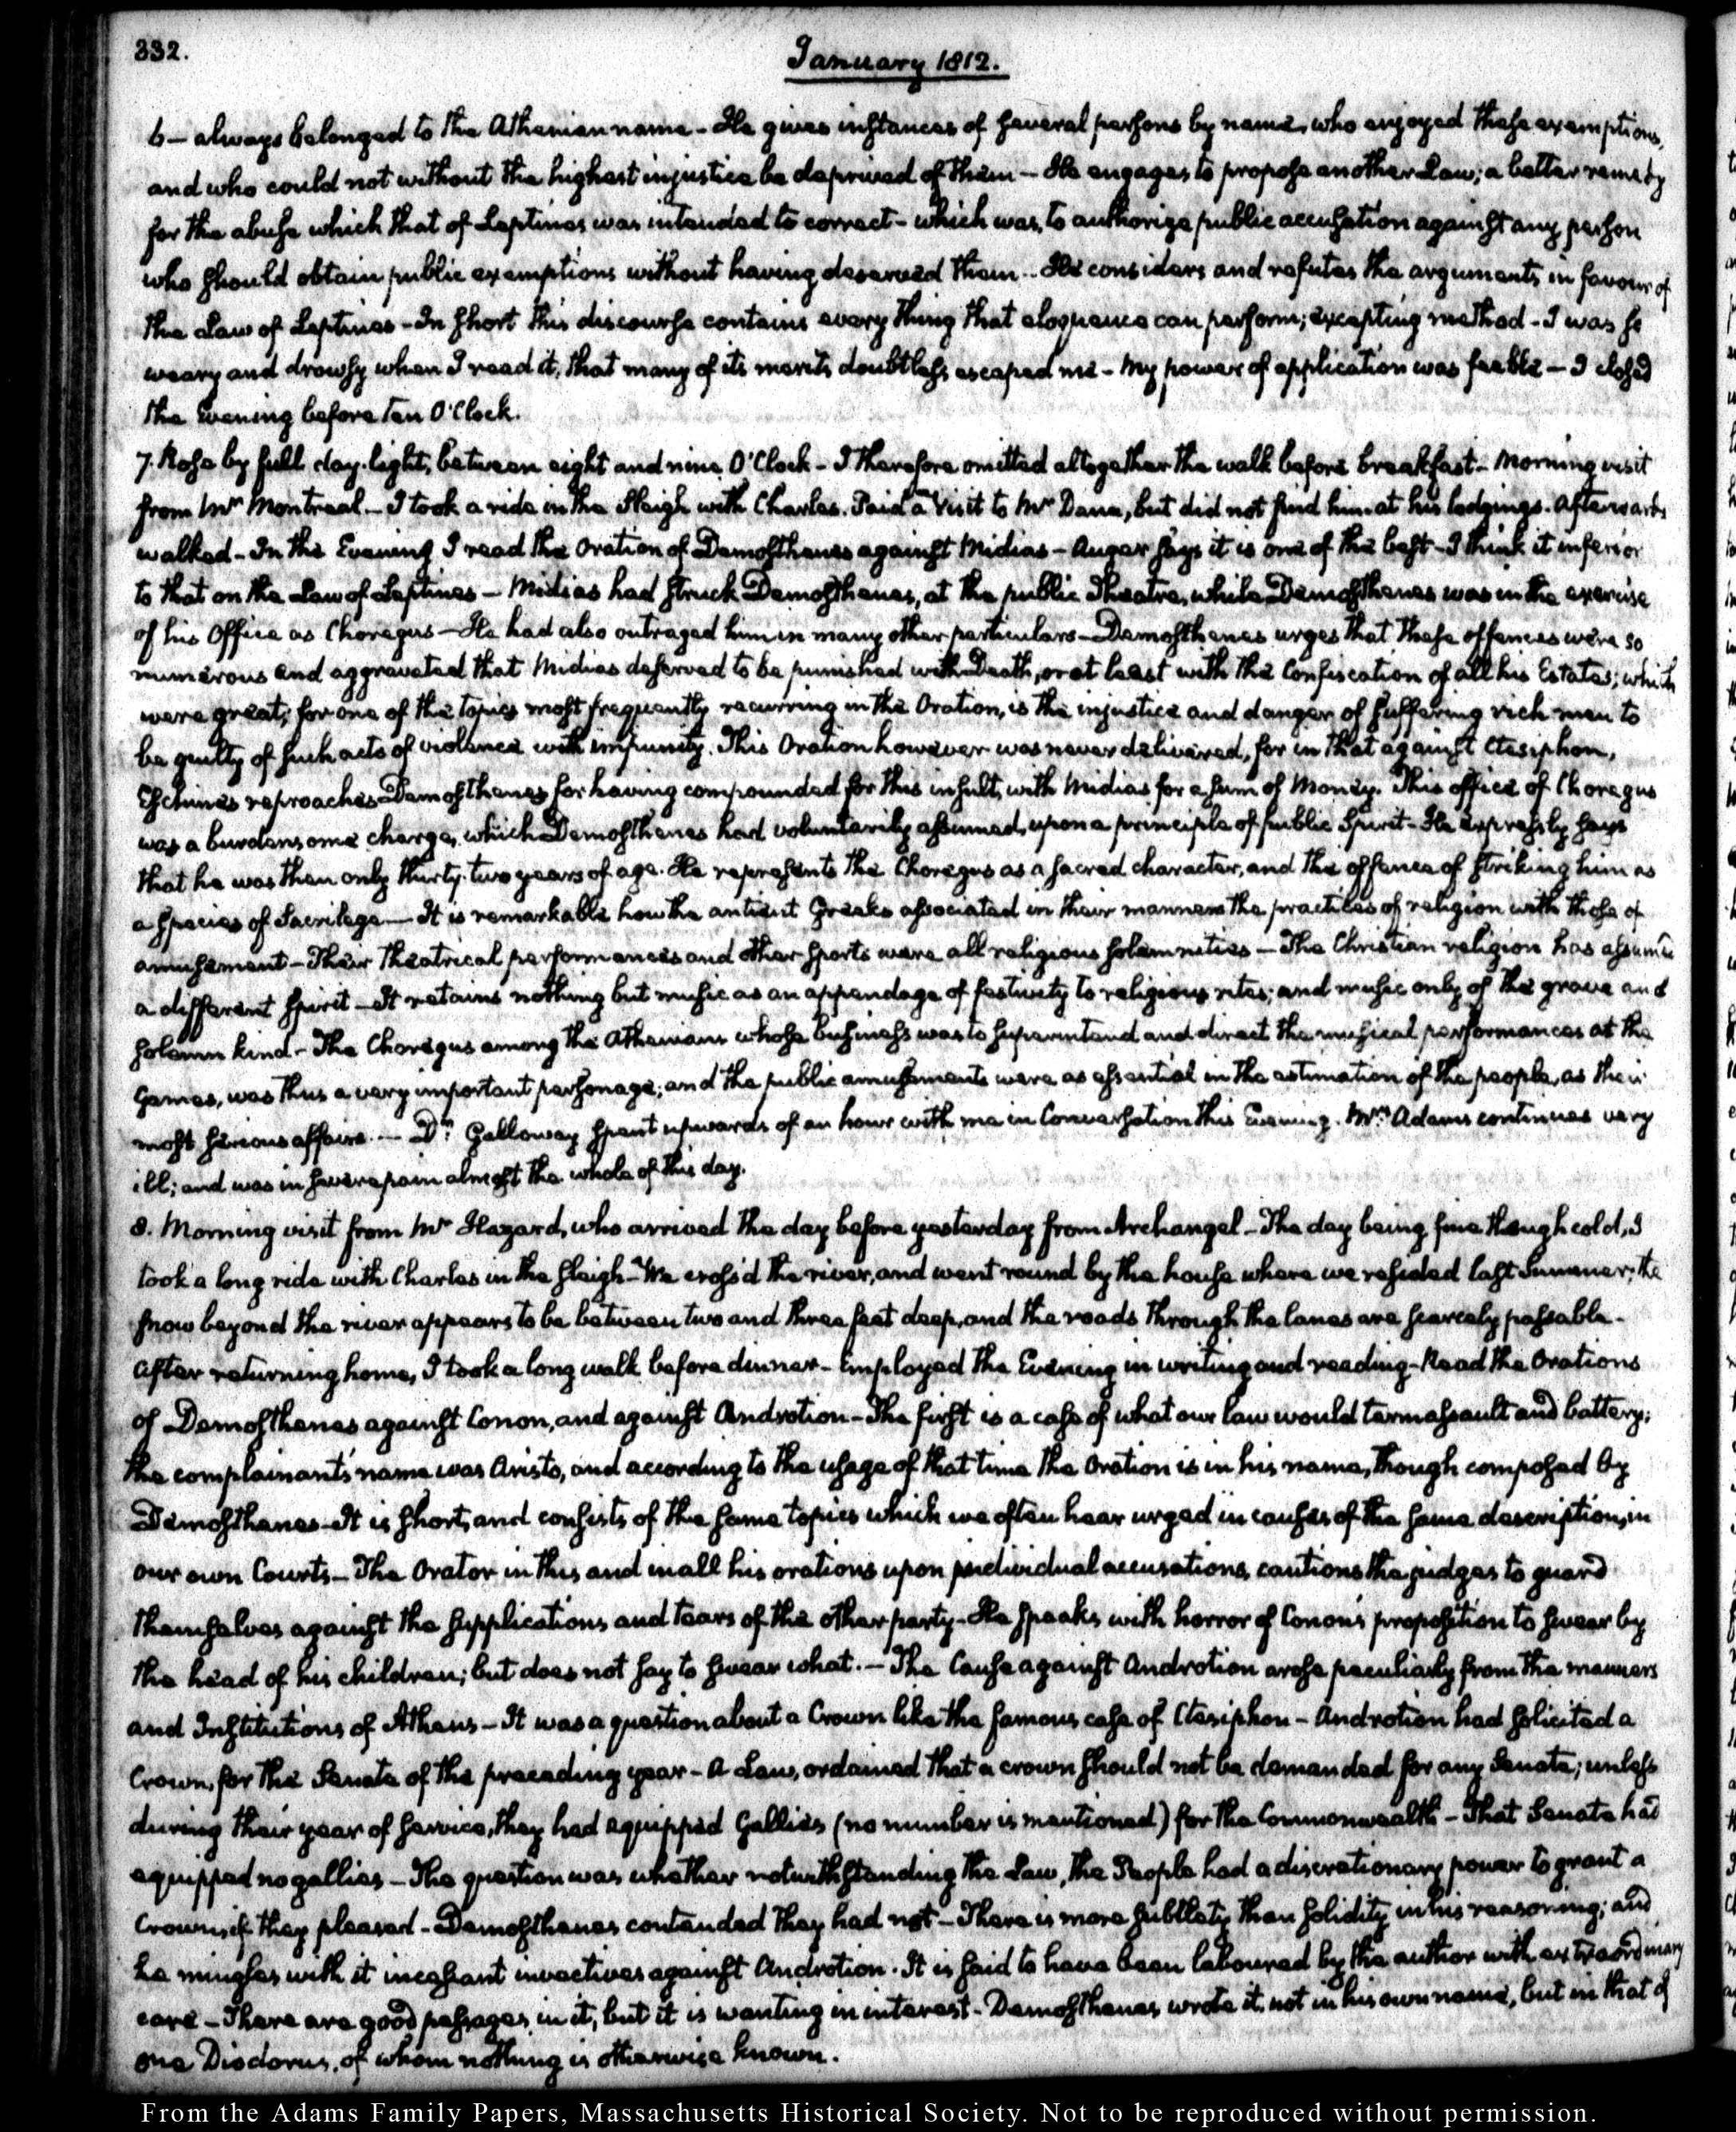 332.
January 1812.
6 — always belonged to the Athenian name — He gives instances of several persons by name, who enjoyed these exemptions,
and who could not without the highest injustice be deprived of them — He engages to propose another Law; a better remedy
for the abuse which that of Leptines was intended to correct — which was, to authorize public accusation against any person
who should obtain public exemptions without having deserved them .. He considers and refutes the arguments in favour of
the Law of Leptines — In short this discourse contains every thing that eloquence can perform; excepting method — I was so
weary and drowsy when I read it, that many of its merits doubtless escaped me — My power of application was feeble — I closed
the Evening before ten O'Clock.
7. Rose by full day-light, between eight and nine O'Clock — I therefore omitted altogether the walk before breakfast — Morning visit
from Mr Montreal — I took a ride in the Sleigh with Charles. Paid a Visit to Mr Dana, but did not find him at his lodgings. Afterwards
walked — In the Evening I read the Oration of Demosthenes against Midias — Auger says it is one of the best — I think it inferior
to that on the Law of Leptines — Midias had struck Demosthenes, at the public Theatre, while Demosthenes was in the exercise
of his Office as Choregus — He had also outraged him in many other particulars — Demosthenes urges that these offences were so
numerous and aggravated that Midias deserved to be punished with Death, or at least with the Confiscation of all his Estates; which
were great; for one of the topics most frequently recurring in the Oration, is the injustice and danger of suffering rich men to
be guilty of such acts of violence with impunity. This Oration however was never delivered, for in that against Ctesiphon,
Eschines reproaches Demosthenes for having compounded for this insult, with Midias for a sum of Money. This office of Choregus
was a burdensome charge, which Demosthenes had voluntarily assumed, upon a principle of public Spirit — He expressly says
that he was then only thirty-two years of age. He represents the Choregus as a sacred character, and the offence of striking him as
a species of Sacrilege — It is remarkable how the antient Greeks associated in their manners the practices of religion with those of
amusement — Their theatrical performances and other sports were all religious solemnities — The Christian religion has assumed
a different spirit — It retains nothing but music as an appendage of festivity to religious rites; and music only of the grave and
solemn kind — The Choregus among the Athenians whose business was to superintend and direct the musical performances at the
Games, was thus a very important personage; and the public amusements were as essential in the estimation of the people, as their
most serious affairs. — Dr. Galloway spent upwards of an hour with me in Conversation this Evening. Mrs Adams continues very
ill; and was in severe pain almost the whole of this day.
8. Morning visit from Mr Hazard, who arrived the day before yesterday from Archangel — The day being fine though cold, I
took a long ride with Charles in the sleigh — We cross'd the river, and went round by the house where we resided last Summer; the
snow beyond the river appears to be between two and three feet deep, and the roads through the lanes are scarcely passable —
After returning home, I took a long walk before dinner — Employed the Evening in writing and reading — Read the Orations
of Demosthenes against Conon, and against Androtion — The first is a case of what our law would term assault and battery;
the complainant's name was Aristo, and according to the usage of that time the Oration is in his name, though composed by
Demosthenes — It is short, and consists of the same topics which we often hear urged in causes of the same description, in
our own Courts — The Orator in this and in all his orations upon individual accusations, cautions the judges to guard
themselves against the supplications and tears of the other party — He speaks with horror of Conon's proposition to swear by
the head of his children; but does not say to swear what. — The Cause against Androtion arose peculiarly from the manners
and Institutions of Athens — It was a question about a Crown like the famous case of Ctesiphon — Androtion had solicited a
Crown, for the Senate of the preceding year — A Law, ordained that a crown should not be demanded for any Senate; unless
during their year of service, they had equipped Gallies (no number is mentioned) for the Commonwealth — That Senate had
equipped no gallies — The question was whether notwithstanding the Law, the People had a discretionary power to grant a
Crown, if they pleased — Demosthenes contended they had not — There is more subtlety than solidity in his reasoning; and
he mingles with it incessant invectives against Androtion. It is said to have been laboured by the author with extraordinary
care — There are good passages in it, but it is wanting in interest — Demosthenes wrote it, not in his own name, but in that of
one Diodorus, of whom nothing is otherwise known.
From the Adams Family Papers, Massachusetts Historical Society. Not to be reproduced without permission.